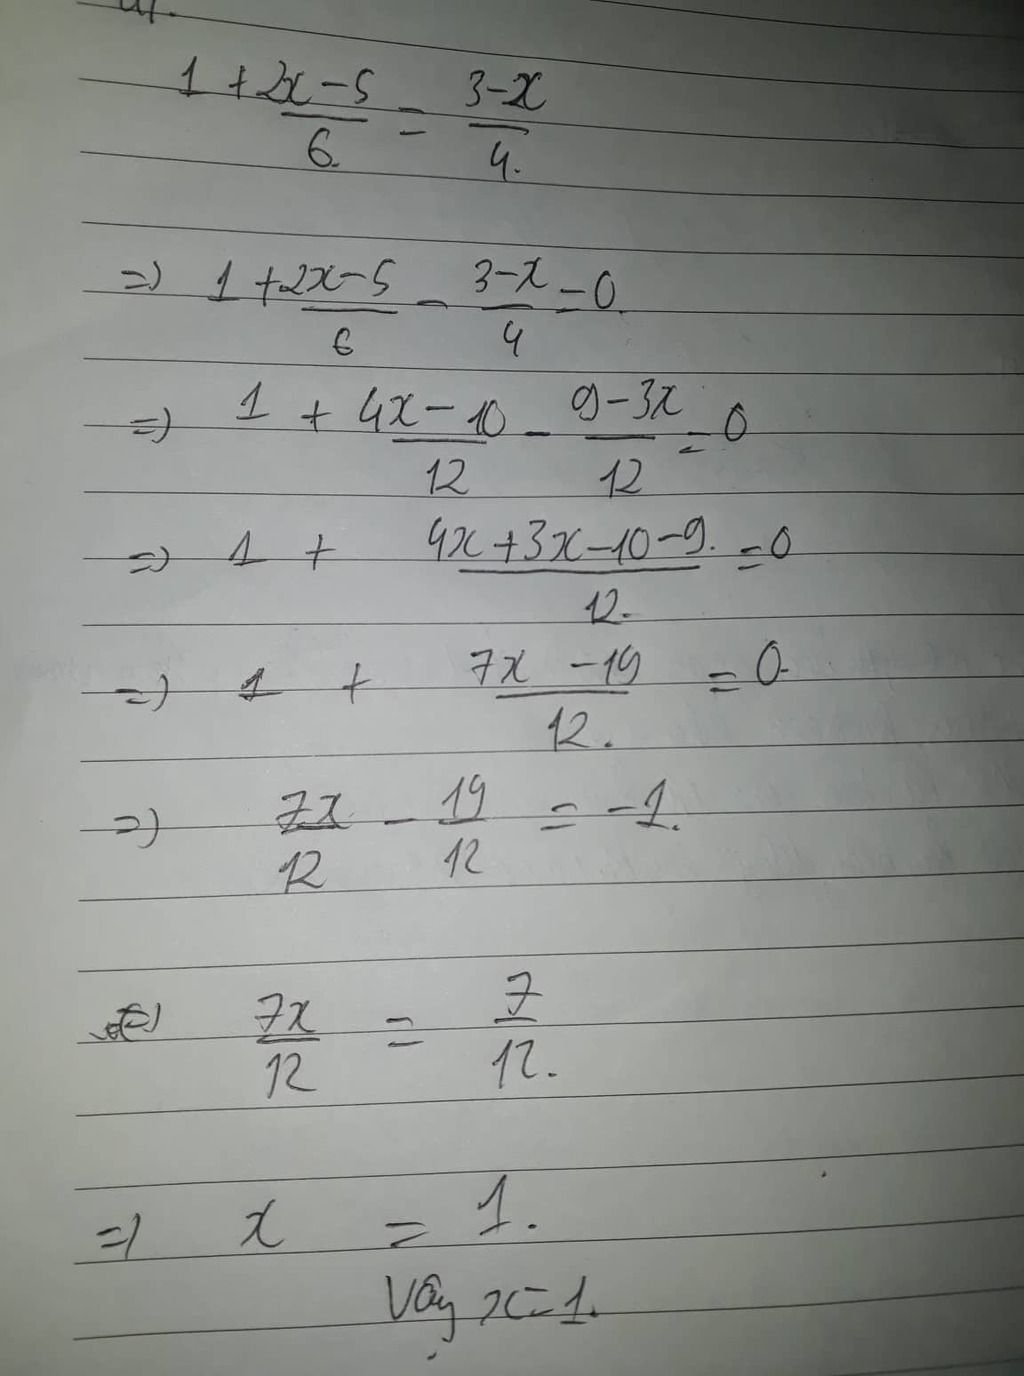 1 + (2x-5)/6 = (3-x)/4.
=) 1 + (2x-5)/6 - (3-x)/4 = 0.
=) 1 + (4x-10)/12 - (9-3x)/12 = 0
=) 1 + (4x+3x-10-9.)/12. = 0
=) 1 + (7x-19)/12. = 0.
=) 7x/12 - 19/12 = -1.
=) 7x/12 = 7/12.
=) x = 1.
Vậy x=1.